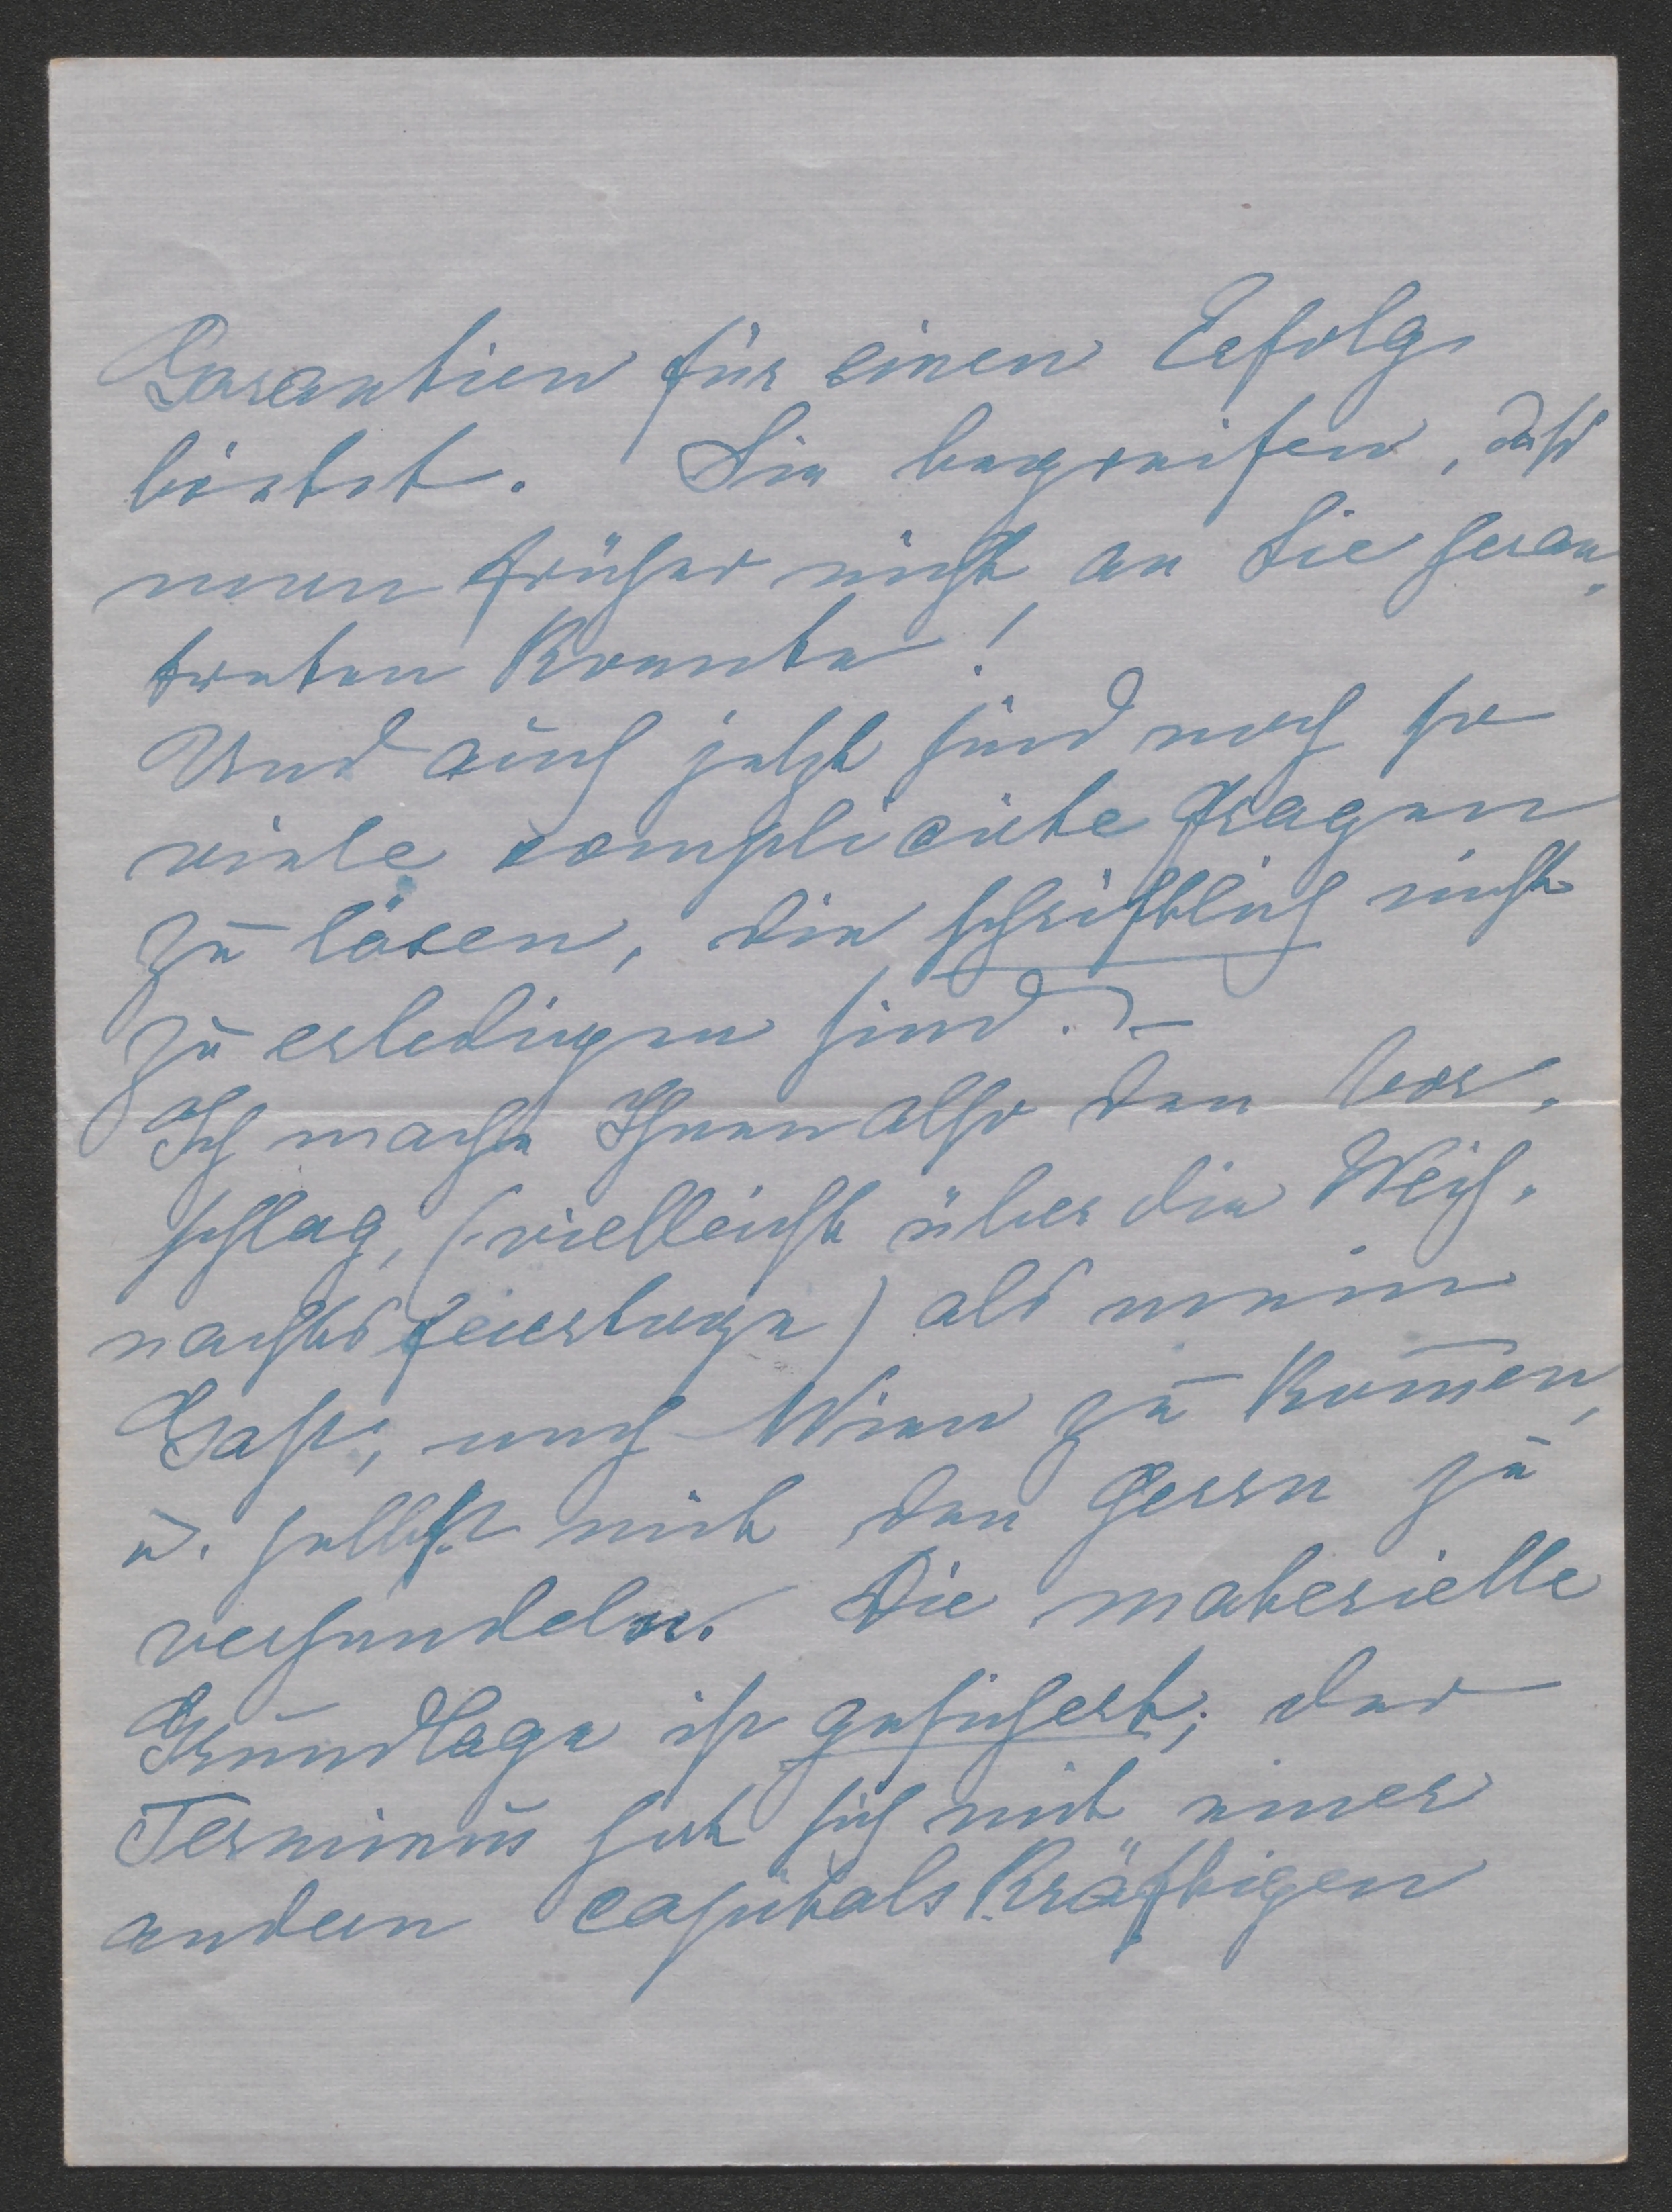 Garantien für einen Erfolg
bietet. Sie begreifen, daß
man früher nicht an Sie heran-
treten konnte!
Und auch jetzt sind noch so
viele complicirte Fragen
zu lösen, die schriftlich nicht
zu erledigen sind. –
Ich mache Ihnen also den Vor-
schlag, (vielleicht über die Weih-
nachtsfeiertage) als mein
Gast, nach Wien zu kom̅en,
u. selbst mit den Herrn zu
verhandeln. Die materielle
Grundlage ist gesichert; der
Terminus hat sich mit einer
andern capitalskräftigen